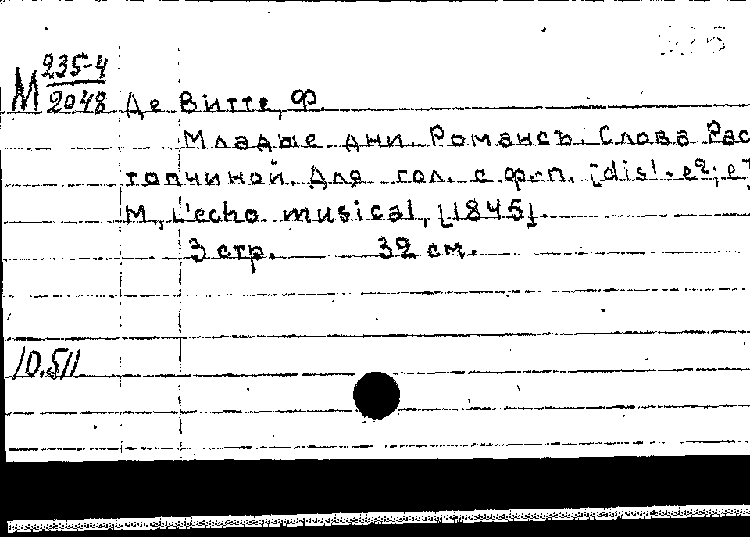 М 235-4
2048
Де Витте, Ф.
Младые дни. Романсъ. Слова Рас
топчиной. Для гол. с ф.-п. [dis!-e2; e]
М., L'echo musical, [1845].
3 стр. 32 см.
10.511